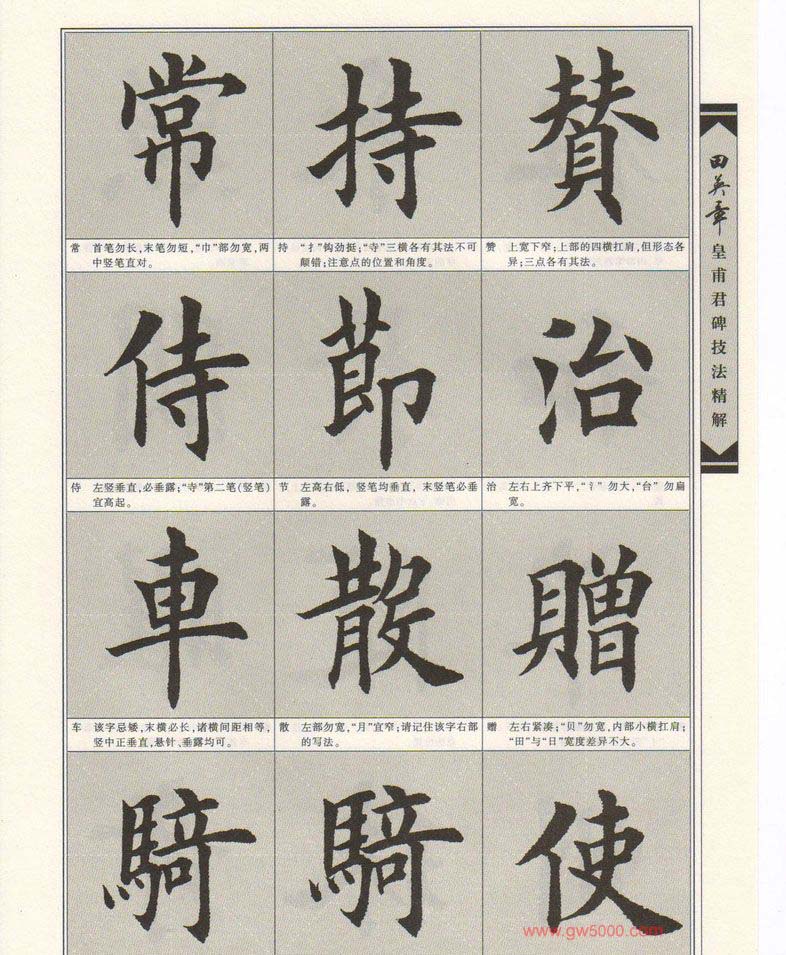 常 持 賛
常 首笔勿长,末笔勿短,“巾”部勿宽,两
中竖笔直对。
持 “扌”钩劲挺;“寺”三横各有其法不可
颠错;注意点的位置和角度。
赞 上宽下窄;上部的四横扛肩,但形态各
异;三点各有其法。
侍 節 治
侍 左竖垂直,必垂露;“寺”第二笔(竖笔)
宜高起。
节 左高右低,竖笔均垂直,末竖笔必垂
露。
治 左右上齐下平,“氵”勿大,“台”勿扁
宽。
車 散 贈
车 该字忌矮,末横必长,诸横间距相等,
竖中正垂直,悬针、垂露均可。
散 左部勿宽,“月”宜窄;请记住该字右部
的写法。
赠 左右紧凑;“贝”勿宽,内部小横扛肩;
“田”与“日”宽度差异不大。
騎 騎 使
田英章
皇甫君碑技法精解
www.gw5000.com